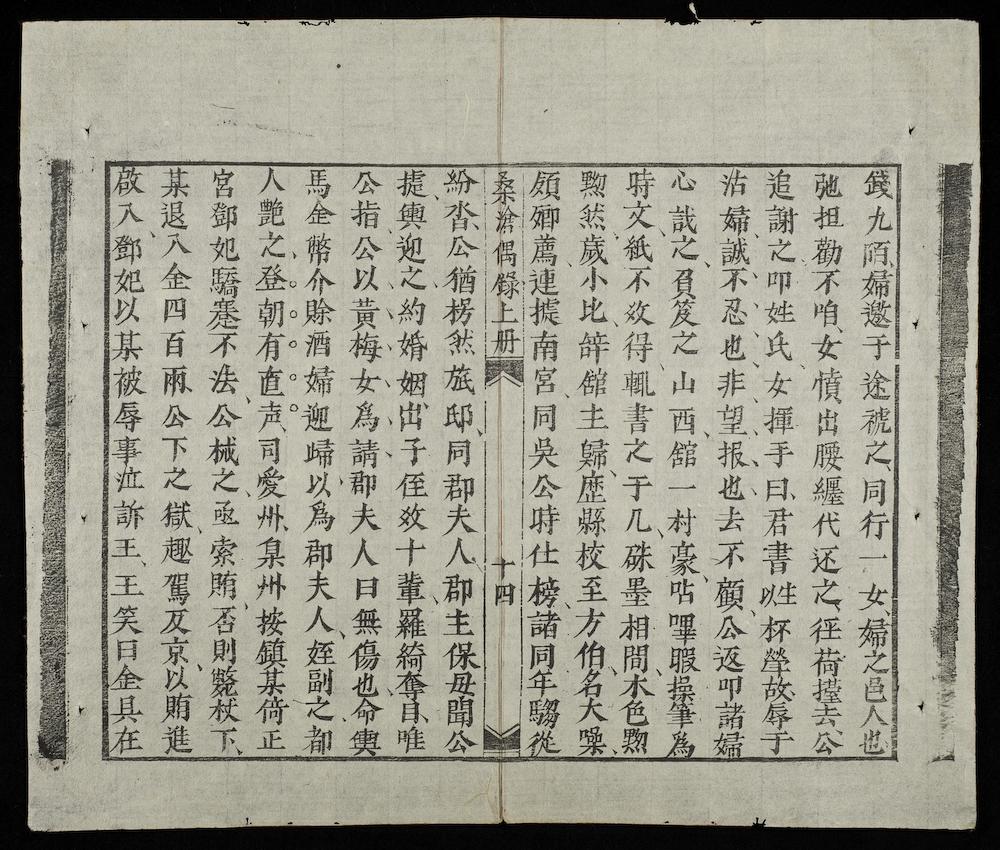 錢九陌婦邀于途褫之同行一女婦之邑人也
弛担勸不咱女憤出腰纏代还之徃荷擡去公
追謝之叩姓氏女揮手曰君書生以杯瑩故辱于
沽婦誠不忍也非望报也去不顧公返叩諸婦
心誌之負笈之山西舘一村豪呫嗶暇操筆為
時文紙不效得輒書之于几硃墨相間木色黝
黝然歲小比辞舘主歸歴縣校至方伯名大噪
領鄕薦連㨿南宮同吳公時仕榜諸同年騶從
桑滄偶錄上册
十四
紛沓公猶楞然旅邸同郡夫人郡主保母聞公
㨗輿迎之約婚姻出子侄效十輩羅綺奪目唯
公指公以黃梅女為請郡夫人曰無傷也命輿
馬金幣介賖酒婦迎歸以為郡夫人姪副之都
人艷之登朝有直声司愛州臬州按鎮某倚正
宮鄧妃驕蹇不法公械之亟索賄否則斃杖下
某退入金四百兩公下之獄趣駕反京以賄進
啟入鄧妃以某被辱事泣訴王王笑曰金具在